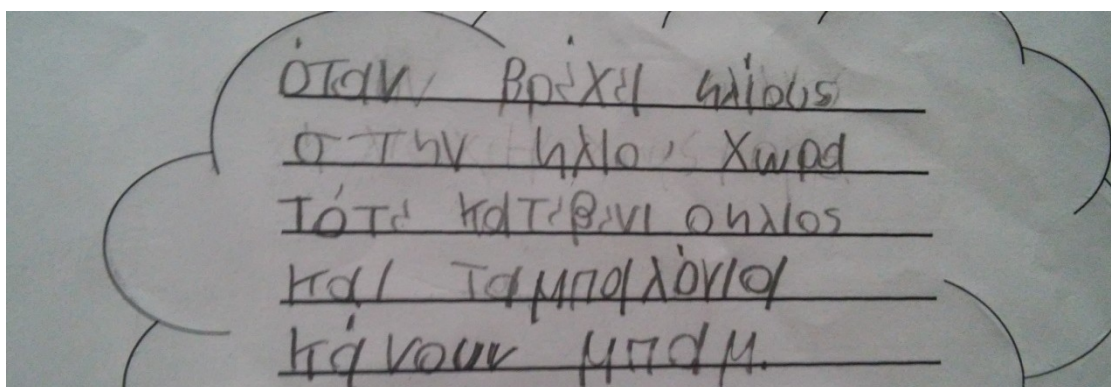 όταν βρέχει ηλίους
στην ηλιο, χωρα
τότε κατεβενι οηλιος
και ταμπαλόνια
κάνουν μπαμ.